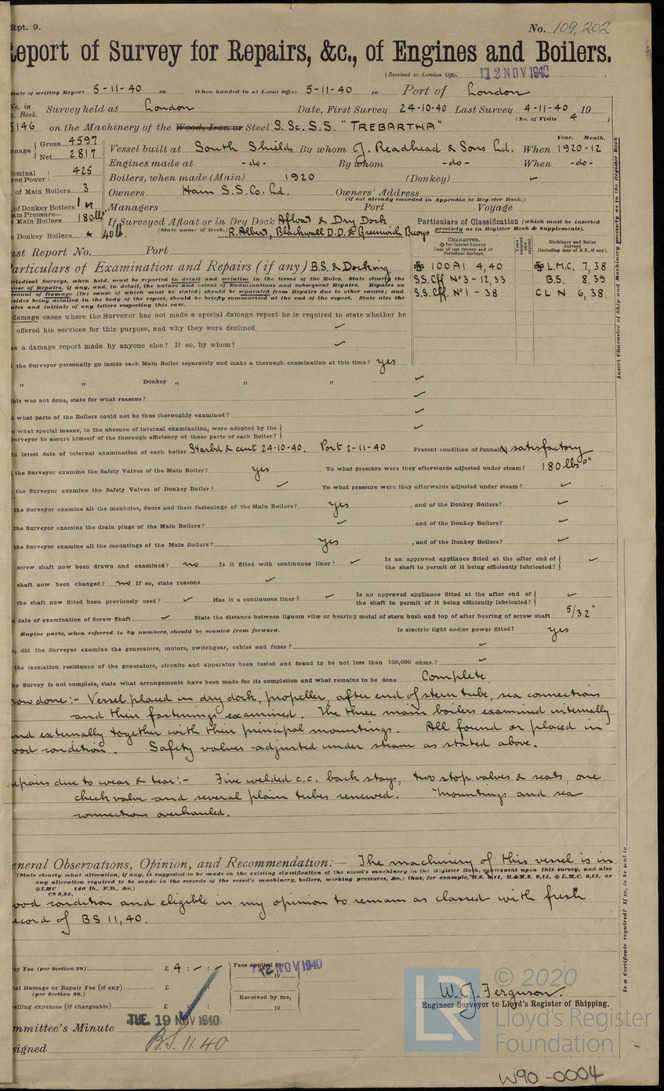 Rpt. 9.
No. 109,202
Report of Survey for Repairs, &c., of Engines and Boilers.
(Received at London Office 12 NOV 1940
Date of writing Report 5-11-40 When handed in at Local Office 5-11-40 Port of London
No. in Book. Survey held at London Date, First Survey 24-10-40 Last Survey 4-11-40 19
(No. of Visits 4 )
5146 on the Machinery of the Wood, Iron or Steel S.Sc.S.S. "TREBARTHA"
Gross 4597
Net 2817
Vessel built at South Shields By whom J. Readhead & Sons Ld. When 1920-12
Year. Month.
Engines made at -do- By whom -do- When -do-
425
Boilers, when made (Main) 1920 (Donkey)
of Main Boilers 3
Owners Hain S.S.Co.Ld. Owners' Address
(if not already recorded in Appendix to Register Book.)
of Donkey Boilers 1
Managers Port Voyage
Main Boilers 180 lb
If Surveyed Afloat or in Dry Dock Afloat & Dry Dock
(State name of Dock.) R. Albert, Blackwall D.D. & Greenwich Buoys
Donkey Boilers 40 lb.
Particulars of Classification (which must be inserted precisely as in Register Book & Supplements).
Last Report No. Port
Particulars of Examination and Repairs (if any) B.S. & Docking
100A1 4,40
L.M.C. 7,38
S.S. Cff No 3-12,33
B.S. 8,39
S.S. Cff. No 1-38
CL N 6,38.
damage cases where the Surveyor has not made a special damage report he is required to state whether he
offered his services for this purpose, and why they were declined
a damage report made by anyone else? If so, by whom?
the Surveyor personally go inside each Main Boiler separately and make a thorough examination at this time? yes
" " Donkey " " "
this was not done, state for what reasons?
what parts of the Boilers could not be thoroughly examined?
what special means, in the absence of internal examination, were adopted by the
Surveyor to assure himself of the thorough efficiency of those parts of each Boiler?
latest date of internal examination of each boiler Starbd & cent 24-10-40. Port 2-11-40 Present condition of funnel satisfactory
the Surveyor examine the Safety Valves of the Main Boiler? yes To what pressure were they afterwards adjusted under steam? 180 lbs
the Surveyor examine the Safety Valves of Donkey Boiler? To what pressure were they afterwards adjusted under steam?
the Surveyor examine all the manholes, doors and their fastenings of the Main Boilers? yes , and of the Donkey Boilers?
the Surveyor examine the drain plugs of the Main Boilers? , and of the Donkey Boilers?
the Surveyor examine all the mountings of the Main Boilers? yes , and of the Donkey Boilers?
screw shaft now been drawn and examined? no Is it fitted with continuous liner? Is an approved appliance fitted at the after end of the shaft to permit of it being efficiently lubricated?
shaft now been changed? no If so, state reasons
the shaft now fitted been previously used? Has it a continuous liner? Is an approved appliance fitted at the after end of the shaft to permit of it being efficiently lubricated?
date of examination of Screw Shaft State the distance between lignum vitæ or bearing metal of stern bush and top of after bearing of screw shaft 5/32"
Engine parts, when referred to by numbers, should be counted from forward. Is electric light and/or power fitted? yes
, did the Surveyor examine the generators, motors, switchgear, cables and fuses?
the insulation resistance of the generators, circuits and apparatus been tested and found to be not less than 100,000 ohms?
the Survey is not complete, state what arrangements have been made for its completion and what remains to be done Complete
now done:- Vessel placed in dry dock, propeller, after end of stern tube, sea connections
and their fastenings examined. The three main boilers examined internally
and externally together with their principal mountings. All found or placed in
good condition. Safety valves adjusted under steam as stated above.
Repairs due to wear & tear:- Five welded c.c. back stays, two stop valves & seats, one
check valve and several plain tubes renewed. Mountings and sea
connections overhauled.
General Observations, Opinion, and Recommendation:— The machinery of this vessel is in
(State clearly what alteration, if any, is suggested to be made in the existing classification of the vessel's machinery in the Register Book, consequent upon this survey, and also
any alteration required to be made in the records of the vessel's machinery, boilers, working pressures, &c.; thus, for example, B.S. 9,11, B.&M.S. 9,11, L.M.C. 9,11, or
L.M.C 140 lb., F.D., &c.)
good condition and eligible in my opinion to remain as classed with fresh
record of BS 11,40.
Fee (per Section 29) £ 4 : - : - Fees applied for 12 NOV 1940
Special Damage or Repair Fee (if any) £
(per Section 29.)
Received by me,
19
Travelling expenses (if chargeable) £
W. J. Ferguson.
Engineer Surveyor to Lloyd's Register of Shipping.
Committee's Minute TUE. 19 NOV 1940
Assigned B.S. 11.40
Insert Character of Ship and Machinery precisely as in the Register Book
Is a Certificate required? If so, to be sent to
© 2020
LR
Lloyd's Register
Foundation
W90-0004